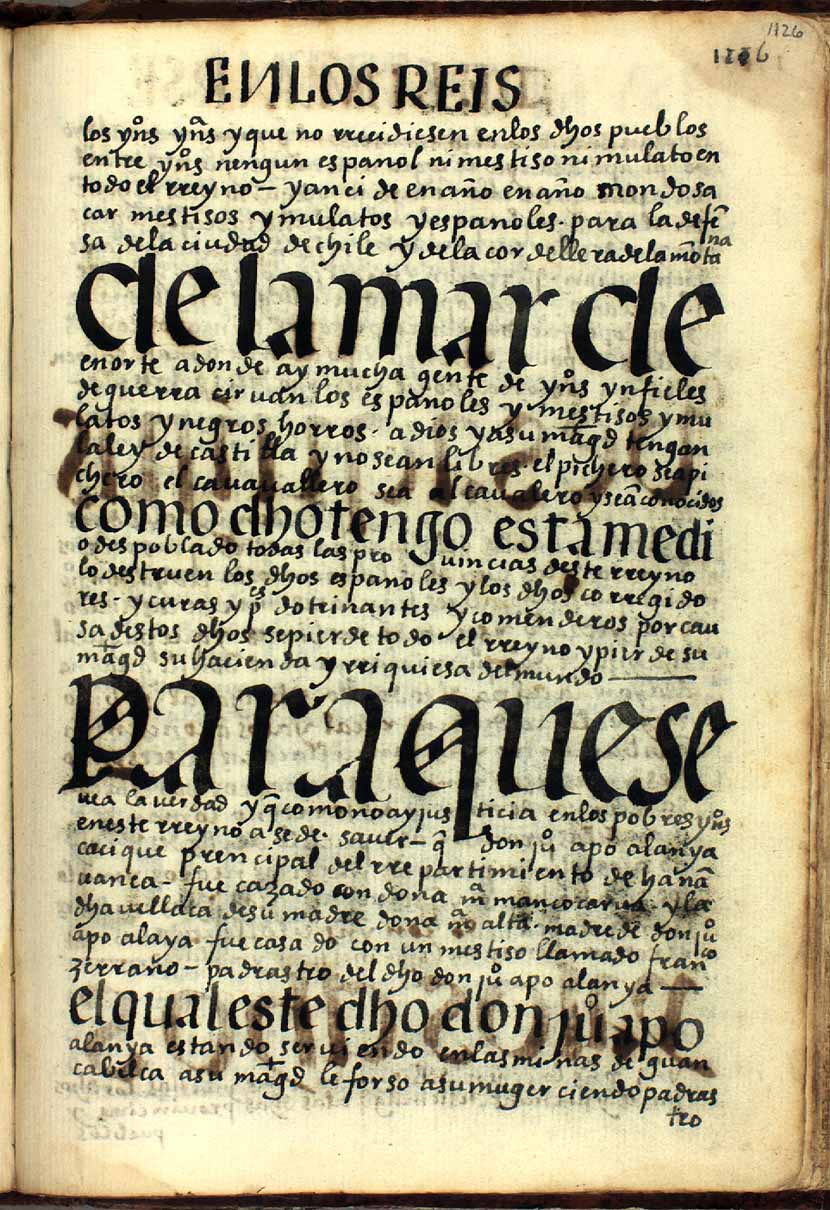 1126
1126
EN LOS REIS
los yns̊ yns̃ y que no rrecidiesen en los dhos pueblos
entre yns̊ nengun español ni mestiso ni mulato en
todo el rreyno – y anci de en año en año mondo sa
car mestisos y mulatos y espanoles · para la defẽ
sa de la ciudad de chile y de la cordellera de la mõta
na
de la mar de
enorte adonde ay mucha gente de yns̊ ynfieles
de guerra cirvan los españoles y mestisos y mu
latos y negros horros · a dios y a su mag̃d tengan
la ley de castilla y no sean libres · el pichero sea pi
chero el cavavallero sea al cavalero y seã conocidos
como dho tengo esta medi
o despoblado todas las pro vincias deste rreyno
lo destruen los dhos españoles y los dhos corregido
res · y curas y pes dotrinantes y comenderos por cau
sa destos dhos se pierde todo el rreyno y pierde su
mag̃d su hacienda y rriquiesa del mundo —
Para que se
vea la verdad y q̃ como no ay jus ticia en los pobres yns̊
en este rreyno a se de · saver – q̃ don juº apo alanya
cacique prencipal del rrepartimiento de hanã
uanca – fue cazado con dona mª manco carua · y la
dha vellaca de su madre dona mª alta · madre de don juº
apo alaya fue casado con un mestiso llamado franco
zerrano – padrastro del dho don juº apo alanya —
el qual este dho don juº apo
alanya estando serviendo en las minas de guan
cabilca a su mag̃d le forso a su muger ciendo padras
tro